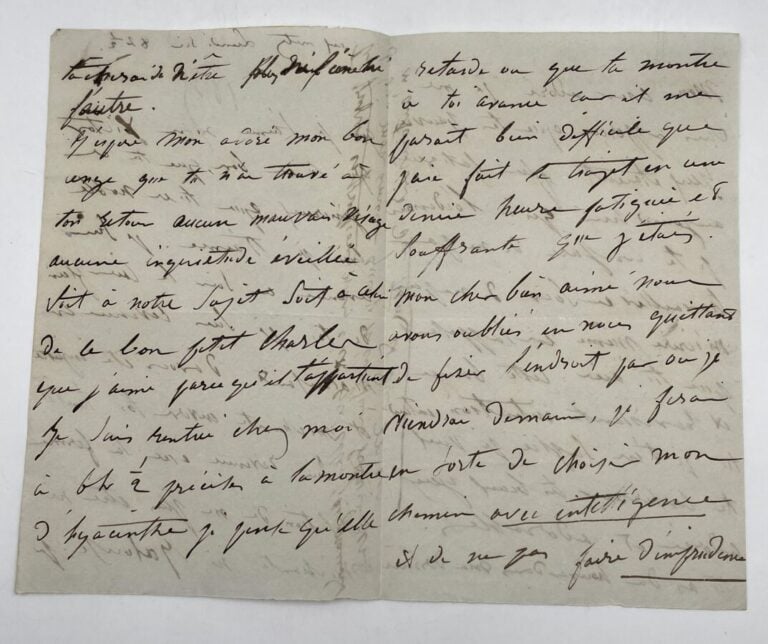 d'être plus
l'autre.
J'espère mon adoré mon bon
ange que tu n'as trouvé à
ton retour aucun mauvais visage
aucune inquiétude éveillée
soit à notre sujet soit à celui
de ce bon petit Charles
que j'aime parce qu'il t'appartient
Je suis rentrée chez moi
à 6h ½ précises à la montre
d'hyacinthe je pense qu'elle
retarde ou que ta montre
à toi avance car il me
parait bien difficile que
j'aie fait le trajet en une
demie heure fatiguée et
souffrante que j'étais.
mon cher bien aimé nous
avons oublié en nous quittant
de fixer l'endroit par où je
viendrai demain, je ferai
en sorte de choisir mon
chemin avec intelligence
et de ne pas faire d'imprudence